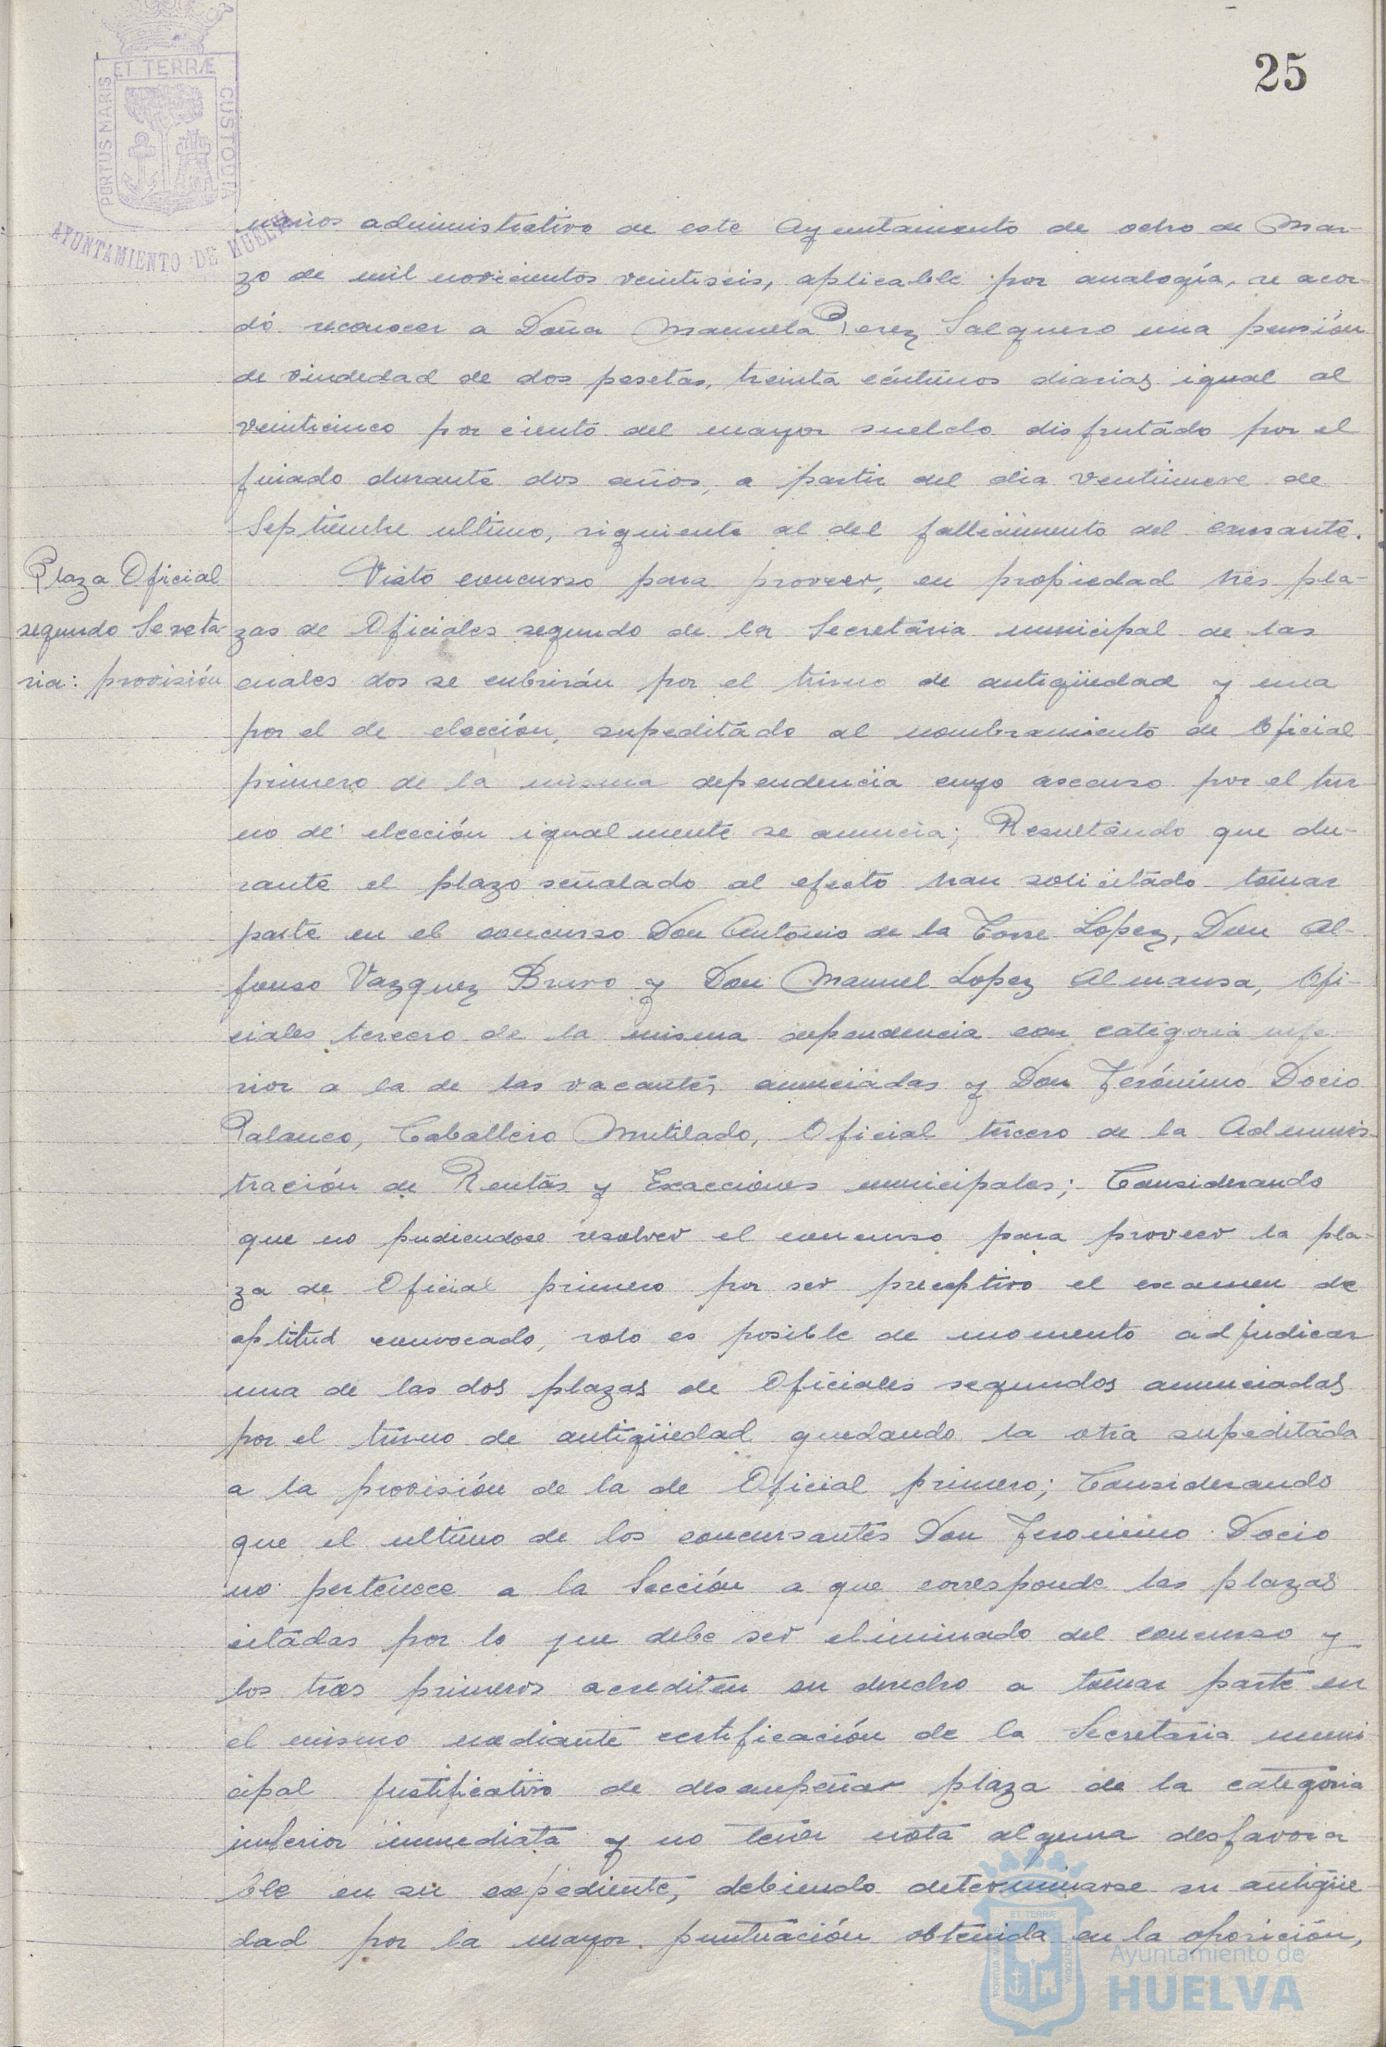 25
PORTUS MARIS ET TERRÆ CUSTODIA
AYUNTAMIENTO DE HUELVA
narios administrativo de este Ayuntamiento de ocho de Mar-
zo de mil novecientos veintiseis, aplicable por analogía, se acor-
dó reconocer a Doña Manuela Perez Salguero una pensión
de viudedad de dos pesetas, treinta céntimos diarias igual al
veinticinco por ciento del mayor sueldo disfrutado por el
finado durante dos años, a partir del dia veintinueve de
Septiembre ultimo, siguiente al del fallecimiento del causante.
Plaza Oficial
segundo Secreta
ria: provisión
Visto concurso para proveer, en propiedad tres pla-
zas de Oficiales segundo de la Secretaria municipal de las
cuales dos se cubrirán por el turno de antigüedad y una
por el de elección, supeditado al nombramiento de Oficial
primero de la misma dependencia cuyo ascenso por el tur-
no de elección igualmente se anuncia; Resultando que du-
rante el plazo señalado al efecto han solicitado tomar
parte en el concurso Don Antonio de la Torre Lopez, Don Al-
fonso Vazquez Bravo y Don Manuel Lopez Almansa, Ofi-
ciales tercero de la misma dependencia con categoria infe-
rior a la de las vacantes anunciadas y Don Jerónimo Docio
Palanco, Caballero Mutilado, Oficial tercero de la Adminis-
tración de Rentas y Exacciones municipales; Considerando
que no pudiendose resolver el concurso para proveer la pla-
za de Oficial primero por ser preceptivo el examen de
aptitud convocado, solo es posible de momento adjudicar
una de las dos plazas de Oficiales segundos anunciadas
por el turno de antigüedad quedando la otra supeditada
a la provisión de la de Oficial primero; Considerando
que el ultimo de los concursantes Don Jeronimo Docio
no pertenece a la Sección a que corresponde las plazas
citadas por lo que debe ser eliminado del concurso y
los tres primeros acrediten su derecho a tomar parte en
el mismo mediante certificación de la Secretaria muni-
cipal justificativo de desempeñar plaza de la categoria
inferior inmediata y no tener nota alguna desfavora-
ble en su expediente, debiendo determinarse su antigüe-
dad por la mayor puntuación obtenida en la oposición,
Ayuntamiento de
HUELVA